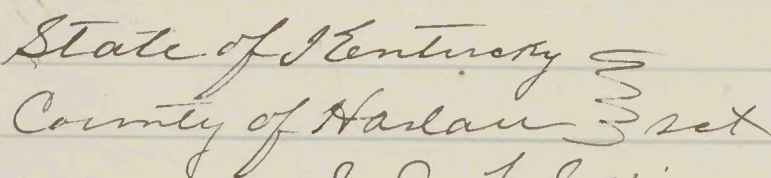 State of Kentucky
County of Harlan sct